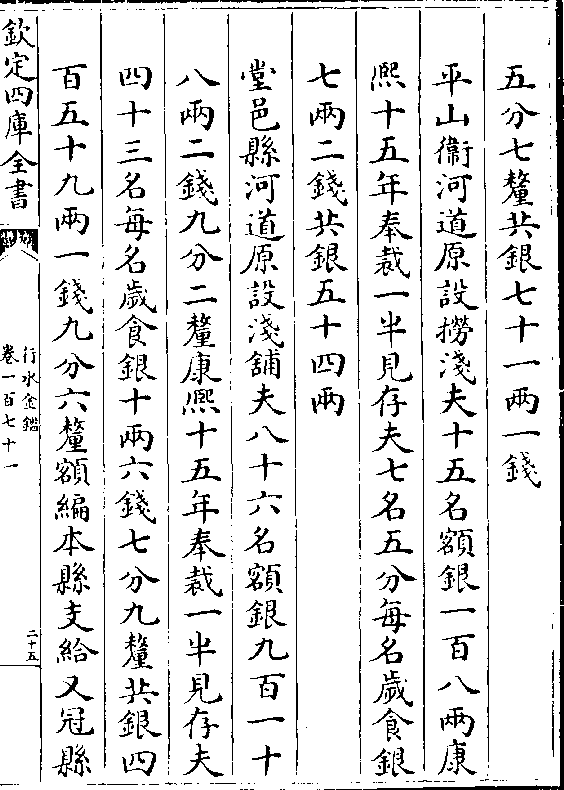 五分七釐共銀七十一兩一錢
平山衞河道原設撈淺夫十五名額銀一百八兩康
熙十五年奉裁一半見存夫七名五分每名歲食銀
七兩二錢共銀五十四兩
堂邑縣河道原設淺舖夫八十六名額銀九百一十
八兩二錢九分二釐康熙十五年奉裁一半見存夫
四十三名每名歲食銀十兩六錢七分九釐共銀四
百五十九兩一錢九分六釐額編本縣支給又冠縣
欽定四庫全書
行水金鑑
卷一百七十一
二十五